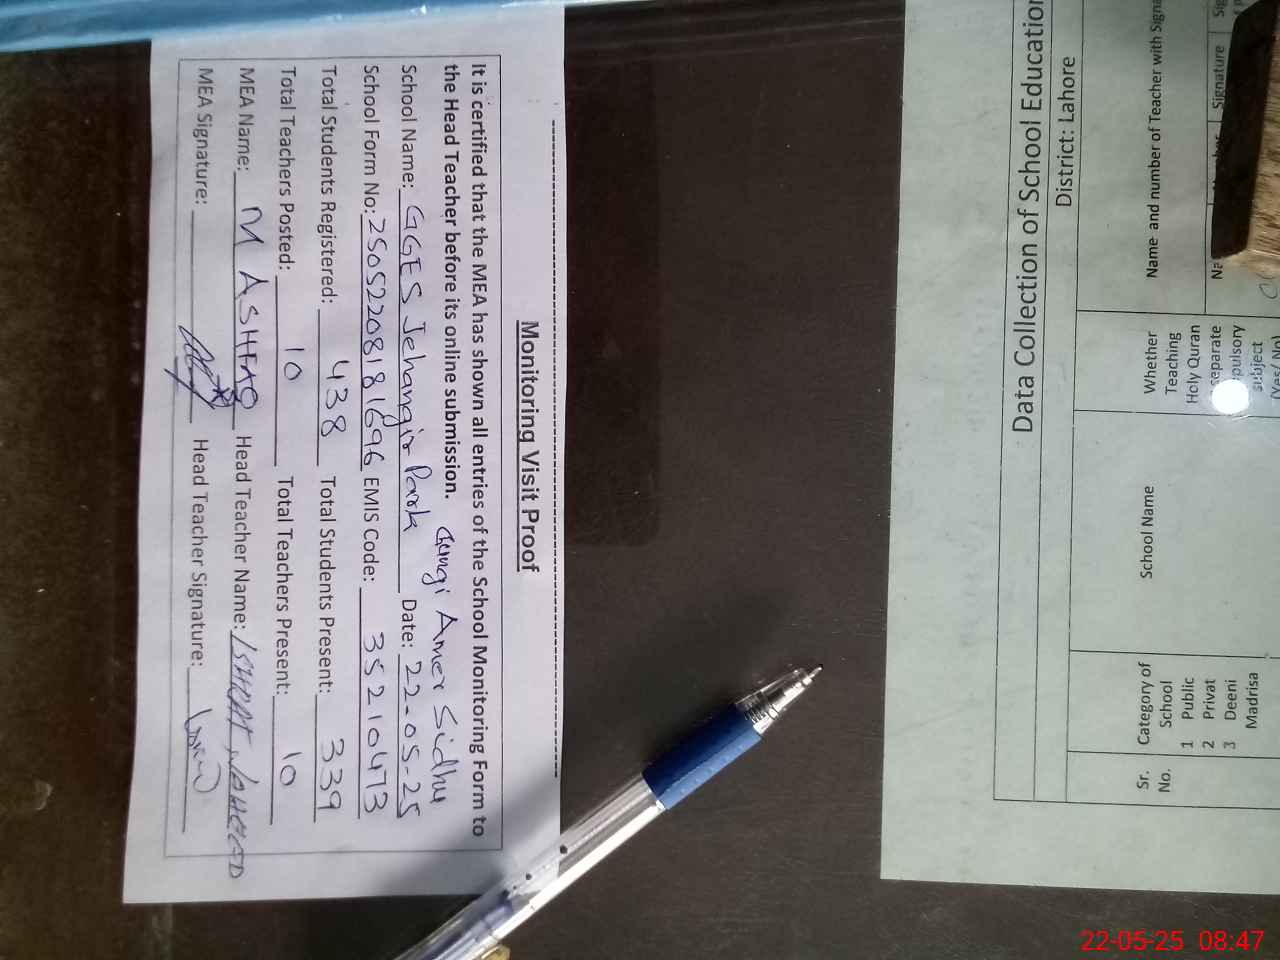 Monitoring Visit Proof
It is certified that the MEA has shown all entries of the School Monitoring Form to
the Head Teacher before its online submission. Gangi Amer Sidhu
School Name: GGES Jehangir Park Date: 22-05-25
School Form No: 25052208181696 EMIS Code: 35210473
Total Students Registered: 438 Total Students Present: 339
Total Teachers Posted: 10 Total Teachers Present: 10
MEA Name: M ASHFAQ Head Teacher Name: ISHRAT WAHEED
MEA Signature: Head Teacher Signature:
Data Collection of School Education
District: Lahore
Sr.
No.
Category of
School
1 Public
2 Privat
3 Deeni
Madrisa
School Name
Whether
Teaching
Holy Quran
separate
pulsory
subject
(Yes/ No)
Name and number of Teacher with Signa
Signature
22-05-25 08:47